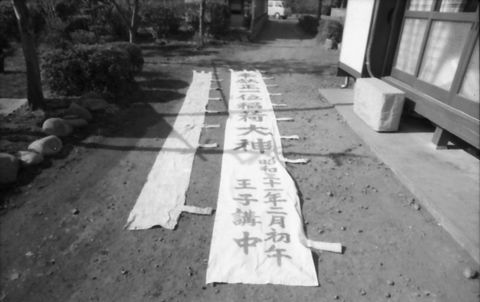 奉献正一位稲荷大神
昭和三十一年二月初午
王子講中